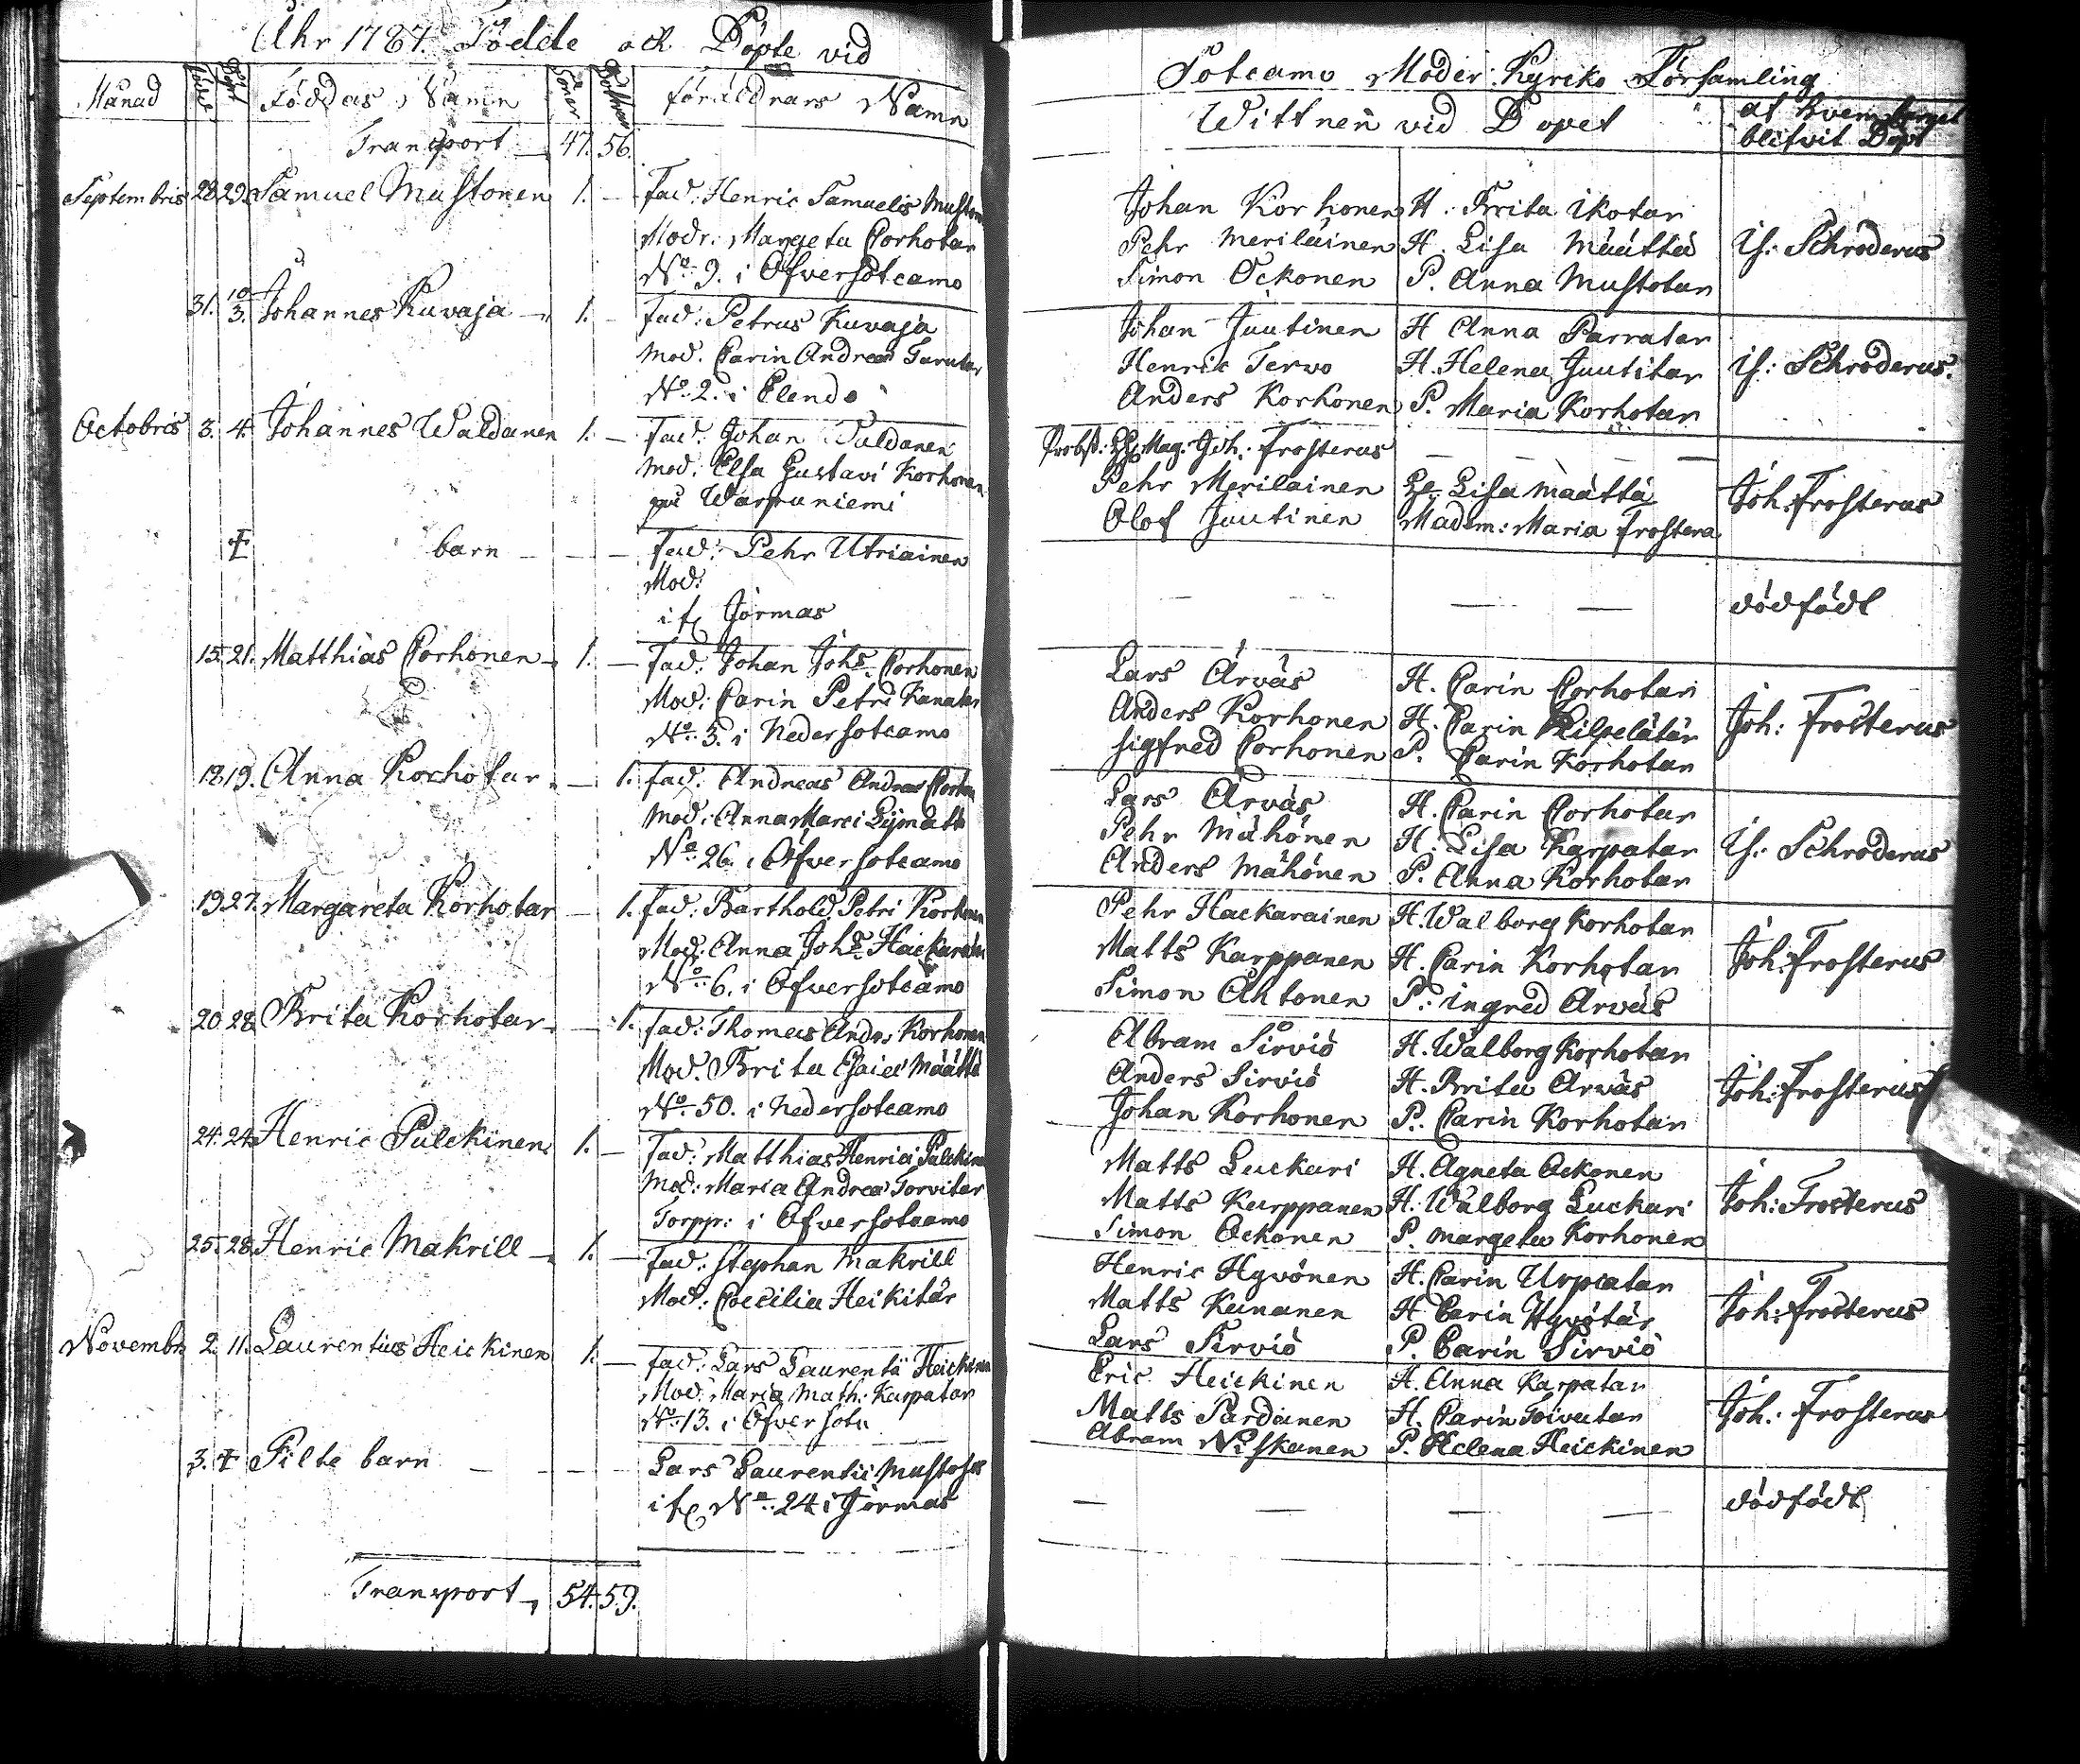 Åhr 1787. Födde och Döpte vid
Månad Födde Döpt Föddas Namn Söner Döttrar föräldrars Namn
Transport 47. 56.
Septembris 28 29. Samuel Mustonen 1. — Fad: Henric Samuelis Muston
Modr: Margeta Corhotar
No 9. i Öfversotcamo
31. 10/3. Johannes Kuvaja 1. — Fad: Petrus Kuvaja
Mod. Carin Andreæ
No 2. i
Octobris 3. 4. Johannes Waldanen 1. — Fad: Johan Valdanen
Mod. Elsa Gustavi Korhonen
på Warpuniemi
barn — — — Fad: Pehr Utriainen
Mod:
i Jormas
15. 21. Matthias Corhonen 1. — Fad: Johan Johs Corhonen
Mod: Carin Petri Kanatar
No 5. i Nedersotcamo
18. 19. Anna Korhotar — 1. Fad: Andreas Andreæ
Mod: Anna Marci Lijmatt
No 26. i Öfversotcamo
19 27. Margareta Korhotar — 1. Fad: Barthold Petri Korhonen
Mod: Anna Johs
No 6. i Öfversotcamo
20 28. Brita Korhotar — 1. Fad: Thomas Andr. Korhonen
Mod. Brita Esaiæ Määttä
No 50. i Nedersotcamo
24. 24. Henric Pulckinen 1. — Fad: Matthias Henrici Pulckin
Mod: Maria Andreæ Torvitar
Torpp: i Öfversotcamo
25. 28. Henric Makrill 1. — Fad: Stephan Makrill
Mod: Coecilia Heikitär
Novembr. 2. 11. Laurentius Heickinen 1. — Fad: Lars Laurentii Heickinen
Mod: Maria Math: Karpatar
No 13. i Öfversotc
3. Pilte barn — — — Lars Laurentii
i No 24 i Jormas
Transport 54. 59.
Sotcamo Moder Kyrcko Församling
Wittnen vid Dopet af hvem barnet
blifvit Döpt
Johan Korhonen H. Brita Ikotar
Pehr Meriläinen H. Lisa Määttä Is: Schroderus
Simon Ockonen P. Anna Mustotar
Johan Juutinen H Anna Parratar
Henric Tervo H. Helena Juutitar Is: Schroderus.
Anders Korhonen P. Maria Korhotar
Probst: Mag: Joh: Frosterus — — — —
Pehr Merilainen Lisa Määttä Joh: Frosterus
Olof Juutinen Madem: Maria Frostera
— — — — dödfödt
Lars Arväs H. Carin Corhotar
Anders Korhonen H. Carin Kilpelätär Joh: Frosterus
Sigfred Corhonen P. Carin Korhotar
Lars Arväs H. Carin Corhotar
Pehr Mähönen H. Lisa Karpatar Is: Schroderus
Anders Mähönen P. Anna Korhotar
Pehr Hackarainen H. Walborg Korhotar
Matts Karppanen H. Carin Korhotar Joh: Frosterus
Simon Ahtonen P: Ingred Arväs
Abram Sirviö H. Walborg Korhotar
Anders Sirviö H. Brita Arväs Joh: Frosterus
Johan Korhonen P. Carin Korhotar
Matts Luckari H. Agneta Ockonen
Matts Karppanen H. Walborg Luckari Joh: Frosterus
Simon Ockonen P. Margeta Korhonen
Henric Hyvönen H. Carin
Matts Kananen H Carin Hyvötär Joh: Frosterus
Lars Sirviö P. Carin Sirviö
Eric Heickinen H. Anna Karpatar
Matts Pardanen H. Carin Toivatar Joh: Frosterus
Abram Niskanen P. Helena Heickinen
— — — — dödfödt